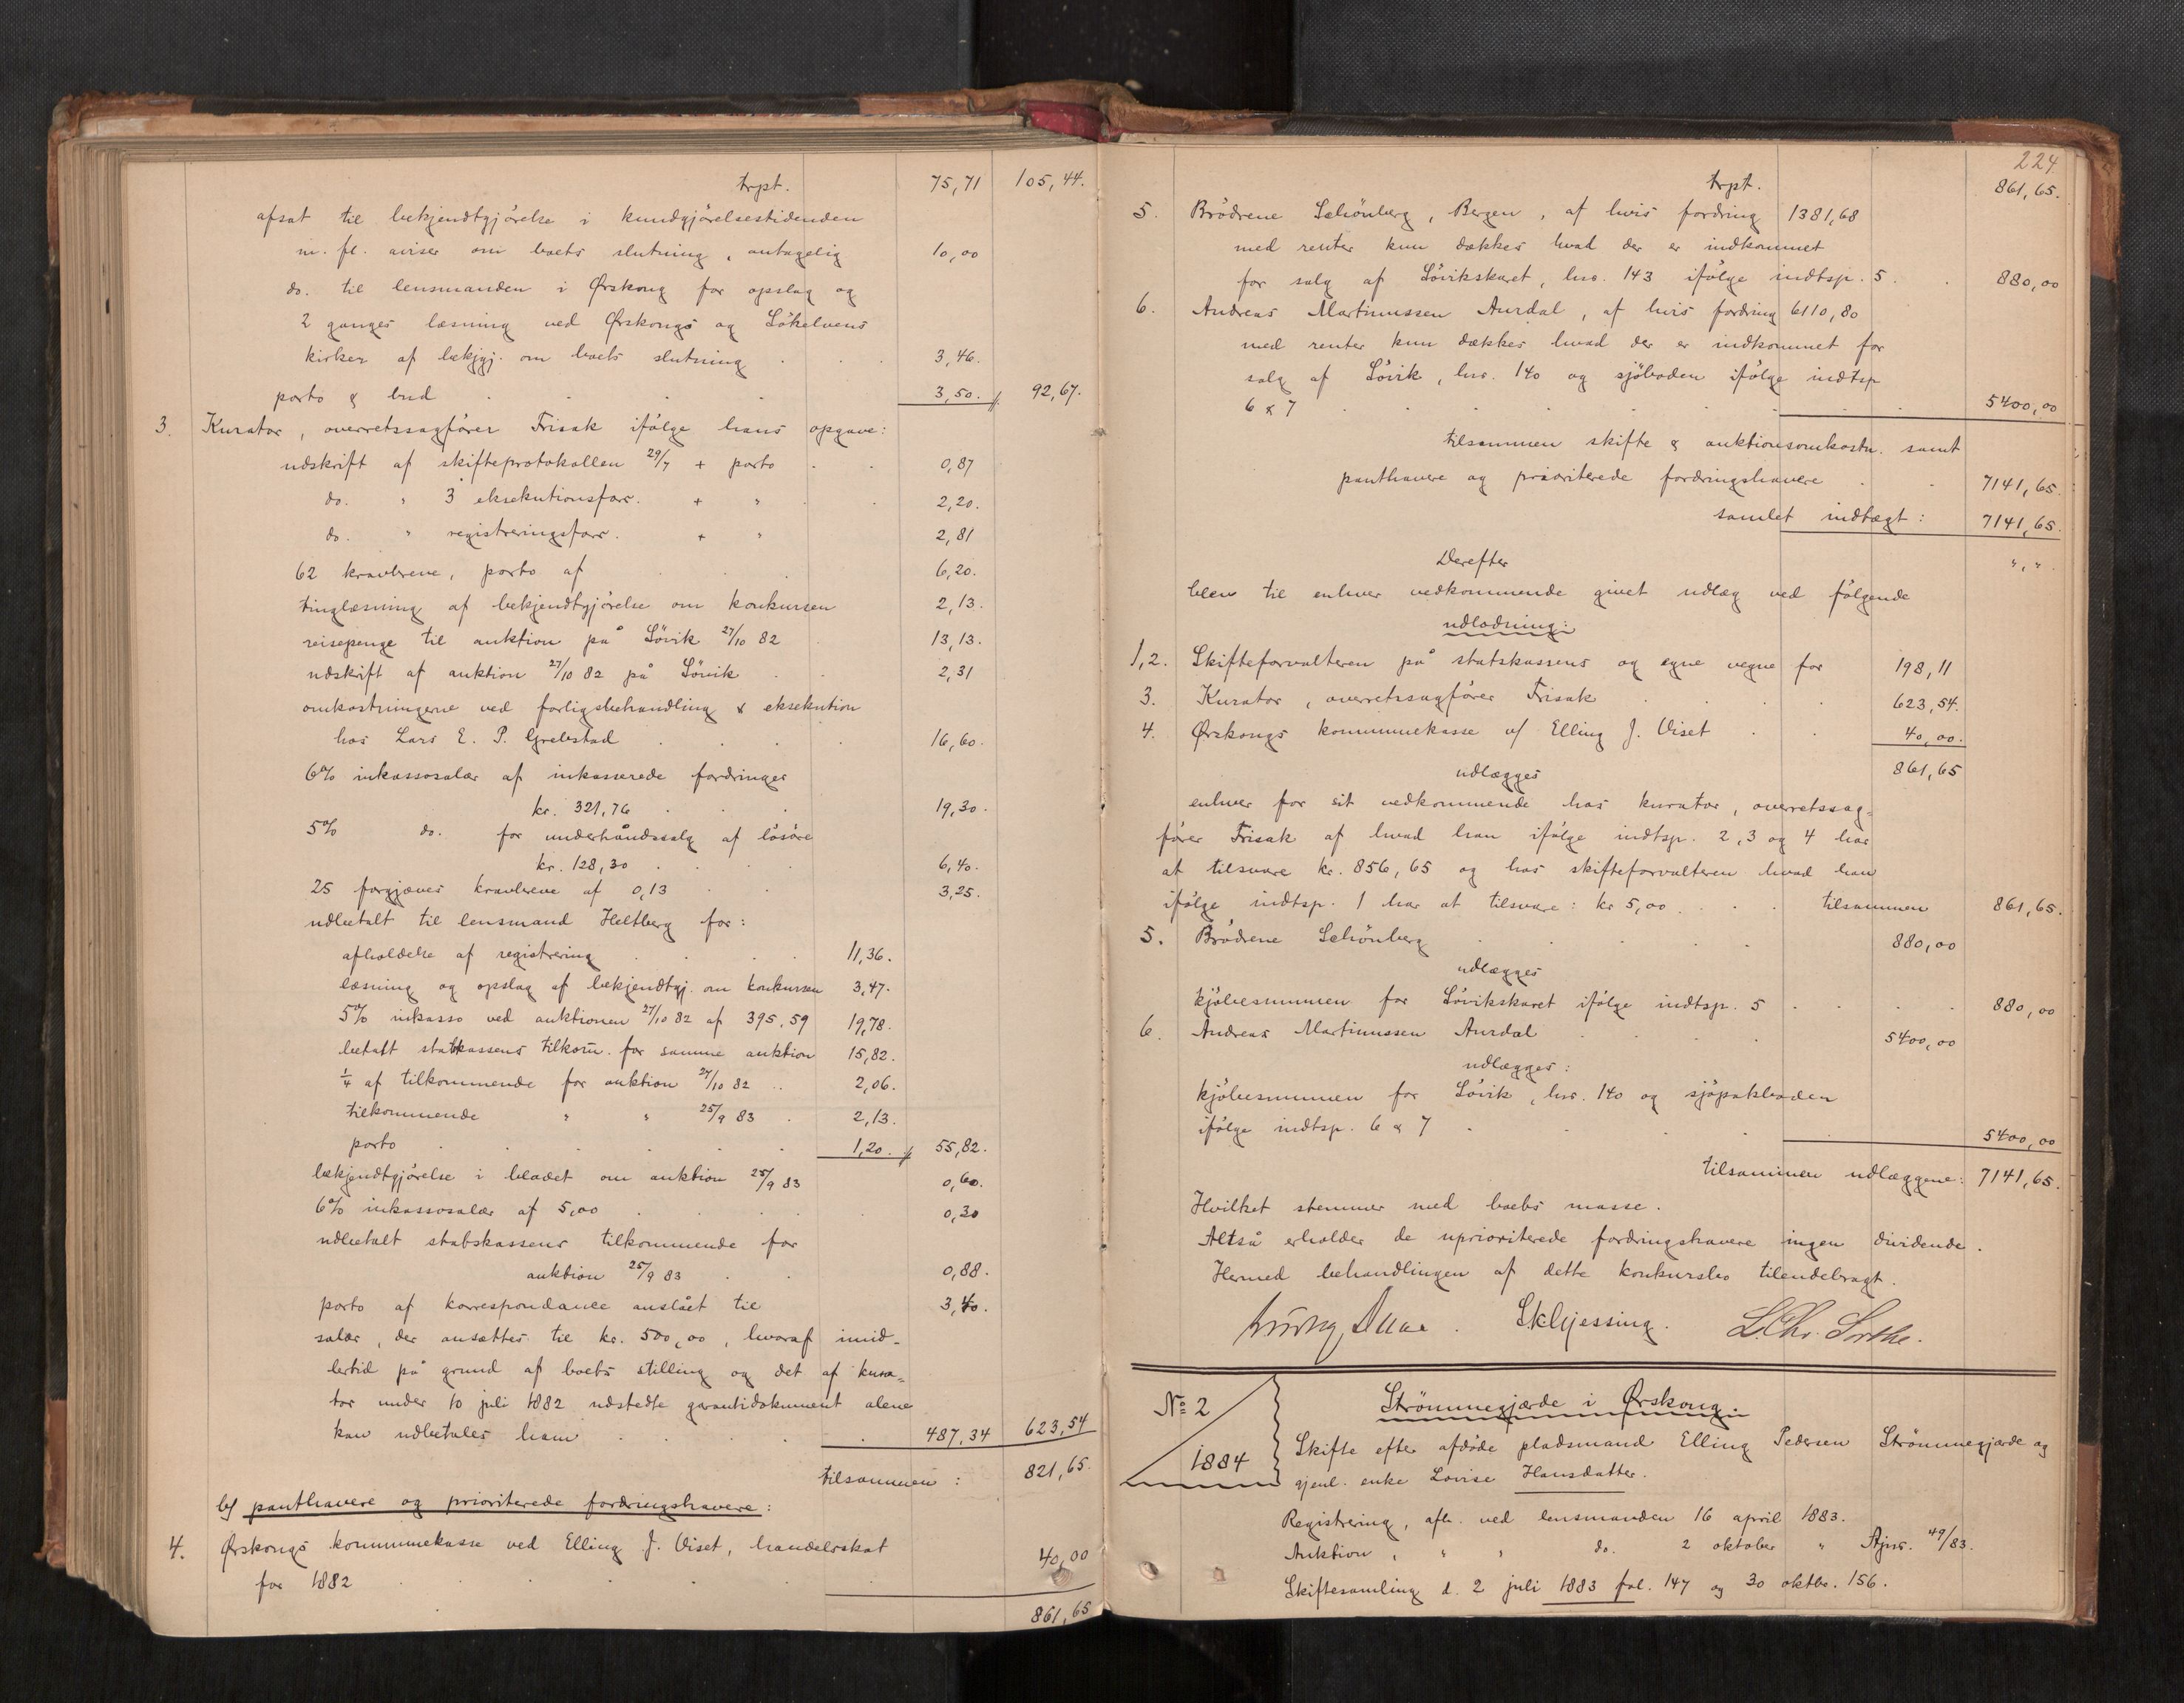 trpt. 75,71 105,44.
afsat til bekjendtgjörelse i kundgjörelsestidenden
m. fl. aviser om boets slutning, antagelig 10,00
do. til lensmanden i Ørskong for opslag og
2 ganges læsning ved Ørskongs og Sökelvens
kirker af bekjgj. om boets slutning 3,46.
porto & bud 3,50. // 92,67.
3. Kurator, overretssagförer Frisak ifölge hans opgave:
udskrift af skifteprotokollen 29/7 + porto 0,87
do. " 3 eksekutionsforr. + " 2,20.
do. " registreringsforr. + " 2,81
62 kravbreve, porto af 6,20.
tinglæsning af bekjendtgjörelse om konkursen 2,13.
reisepenge til auktion på Lövik 27/10 82 13,13.
udskrift af auktion 27/10 82 på Lövik 2,31
omkostningerne ved forligsbehandling & eksekution
hos Lars E. P. Grebstad 16,60.
6% inkassosalær af inkasserede fordringer
kr. 321,76 19,30.
5% do. for underhåndssalg af lösöre
kr. 128,30 6,40.
25 forgjæves kravbreve af 0,13 3,25.
udbetalt til lensmand Heltberg for:
afholdelse af registrering 11,36.
læsning og opslag af bekjendtgj. om konkursen 3,47.
5% inkasso ved auktionen 27/10 82 af 395,59 19,78.
betalt statskassens tilkom. for samme auktion 15,82.
1/4 af tilkommende for auktion 27/10 82 .. 2,06.
tilkommende " " 25/9 83 2,13.
porto 1,20. // 55,82.
bekjendtgjörelse i bladet om auktion 25/9 83 0,60.
6% inkassosalær af 5,00 0,30
udbetalt statskassens tilkommende for
auktion 25/9 83 0,88.
porto af korrespondance anslået til 3,40.
salær, der ansættes til kr. 500,00, hvoraf imid-
lertid på grund af boets stilling og det af kura-
tor under 10 juli 1882 udstedte garantidokument alene
kan udbetales ham 487,34 623,54
tilsammen: 821,65.
b/ panthavere og prioriterede fordringshavere:
4. Ørskongs kommunekasse ved Elling J. Viset, handelsskat
for 1882 40,00
861,65
224
trpt. 861,65.
5. Brödrene Schönberg, Bergen, af hvis fordring 1381,68
med renter kun dækkes hvad der er indkommet
for salg af Lövikskaret, lno. 143 ifölge indtsp. 5 880,00
6. Andreas Martinussen Aurdal, af hvis fordring 6110,80
med renter kun dækkes hvad der er indkommet for
salg af Lövik, lno. 140 og sjöboden ifölge indtsp
6 & 7 5400,00
tilsammen skifte & auktionsomkostn. samt
panthavere og prioriterede fordringshavere 7141,65.
samlet indtægt: 7141,65.
Derefter ",".
blev til enhver vedkommende givet udlæg ved fölgende
udlodning:
1,2. Skifteforvalteren på statskassens og egne vegne for 198,11
3. Kurator, overretssagförer Frisak 623,54.
4. Ørskongs kommunekasse v/ Elling J. Viset 40,00.
udlægges 861,65
enhver for sit vedkommende hos kurator, overretssag-
förer Frisak af hvad han ifölge indtsp. 2, 3 og 4 har
at tilsvare kr. 856,65 og hos skifteforvalteren hvad han
ifölge indtsp. 1 har at tilsvare: kr 5,00 tilsammen 861,65.
5. Brödrene Schönberg 880,00
udlægges
kjöbesummen for Lövikskaret ifölge indtsp. 5 880,00
6. Andreas Martinussen Aurdal 5400,00
udlægges:
kjöbesummen for Lövik, lno. 140 og sjöpakboden
ifölge indtsp. 6 & 7 5400,00
tilsammen udlæggene: 7141,65.
Hvilket stemmer med boets masse.
Altså erholder de uprioriterede fordringshavere ingen dividende.
Hermed behandlingen af dette konkursbo tilendebragt.
Skljessing. L. Chr. Sorthe.
No 2
1884
Strömmegjærde i Ørskong.
Skifte efter afdöde pladsmand Elling Pedersen Strömmegjærde og
gjenl. enke Lovise Hansdatter.
Registrering, afh. ved lensmanden 16 april 1883.
Auktion, " " do. 2 oktober " Ajnr. 49/83.
Skiftesamling d. 2 juli 1883 fol. 147 og 30 oktbr. 156.